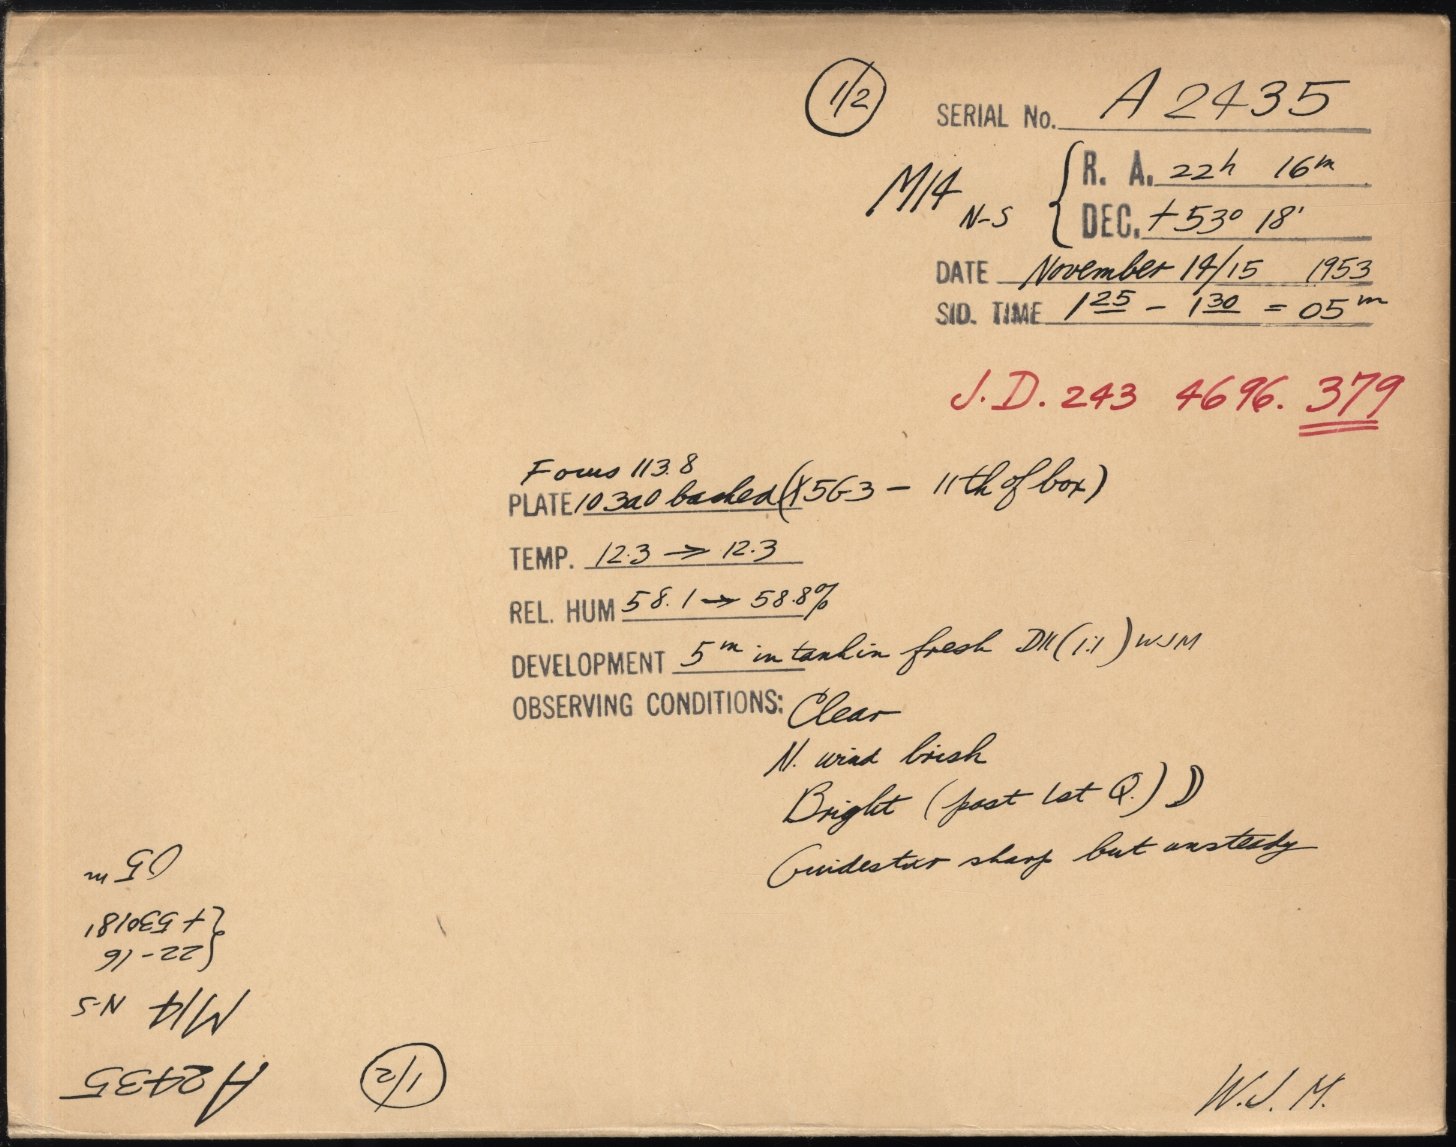 1/2
SERIAL No. A 2435
M14 N-S
R. A. 22h 16m
DEC. +53° 18'
DATE November 14/15 1953
SID. TIME 1 25 - 1 30 = 05 m
J.D. 243 4696.379
Focus 113.8
PLATE 103aO backed (X5G3 - 11th of box)
TEMP. 12.3 → 12.3
REL. HUM 58.1 → 58.8%
DEVELOPMENT 5m in tank in fresh DK (1:1) WJM
OBSERVING CONDITIONS: Clear
N. wind brisk
Bright (past 1st Q.) ☽
Guidestar sharp but unsteady
W.J.M.
A2435 1/2
M14 N-S
22-16
+53°18'
05 m